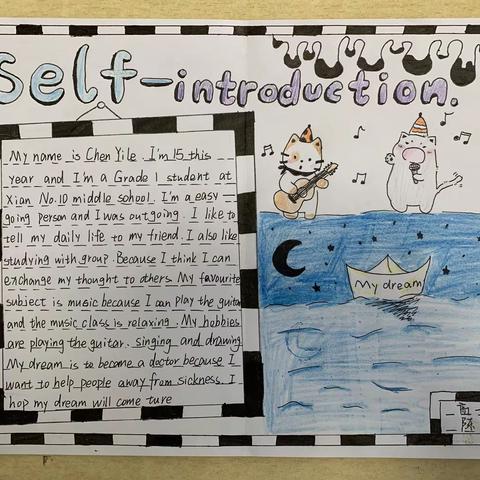 Self-introduction.
My name is Chen Yile. I'm 15 this
year and I'm a Grade 1 student at
Xian No.10 middle school. I'm a easy
going person and I was outgoing. I like to
tell my daily life to my friend. I also like
studying with group. Because I think I can
exchange my thought to others. My favourite
subject is music because I can play the guitar
and the music class is relaxing. My hobbies
are playing the guitar. singing and drawing
My dream is to become a doctor because I
want to help people away from sickness. I
hop my dream will come ture
My dream